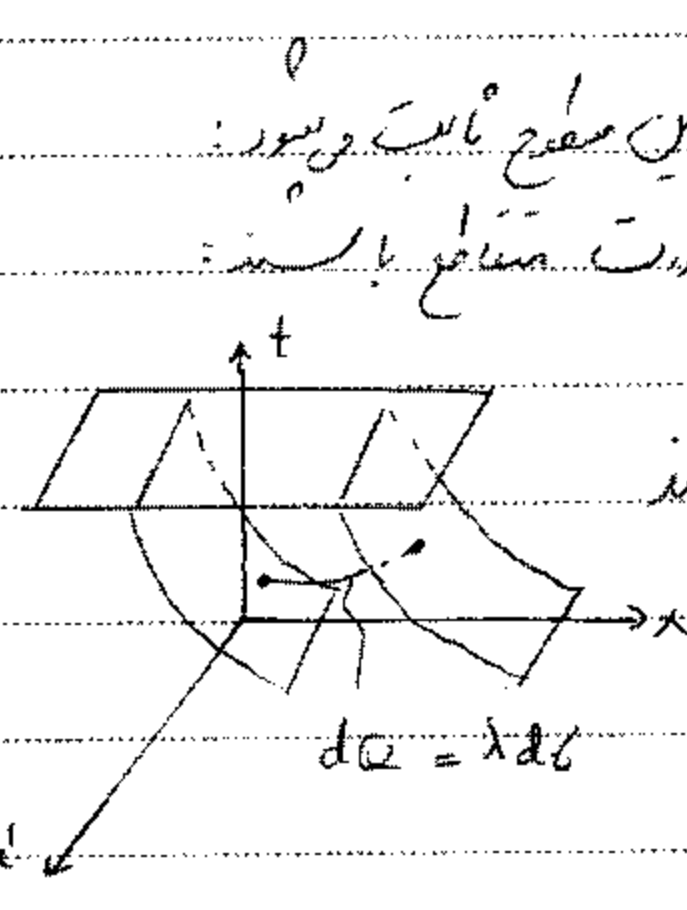 سطوح ثابت می‌شود :
متقاطع باشند :
t
x
dQ = λdσ